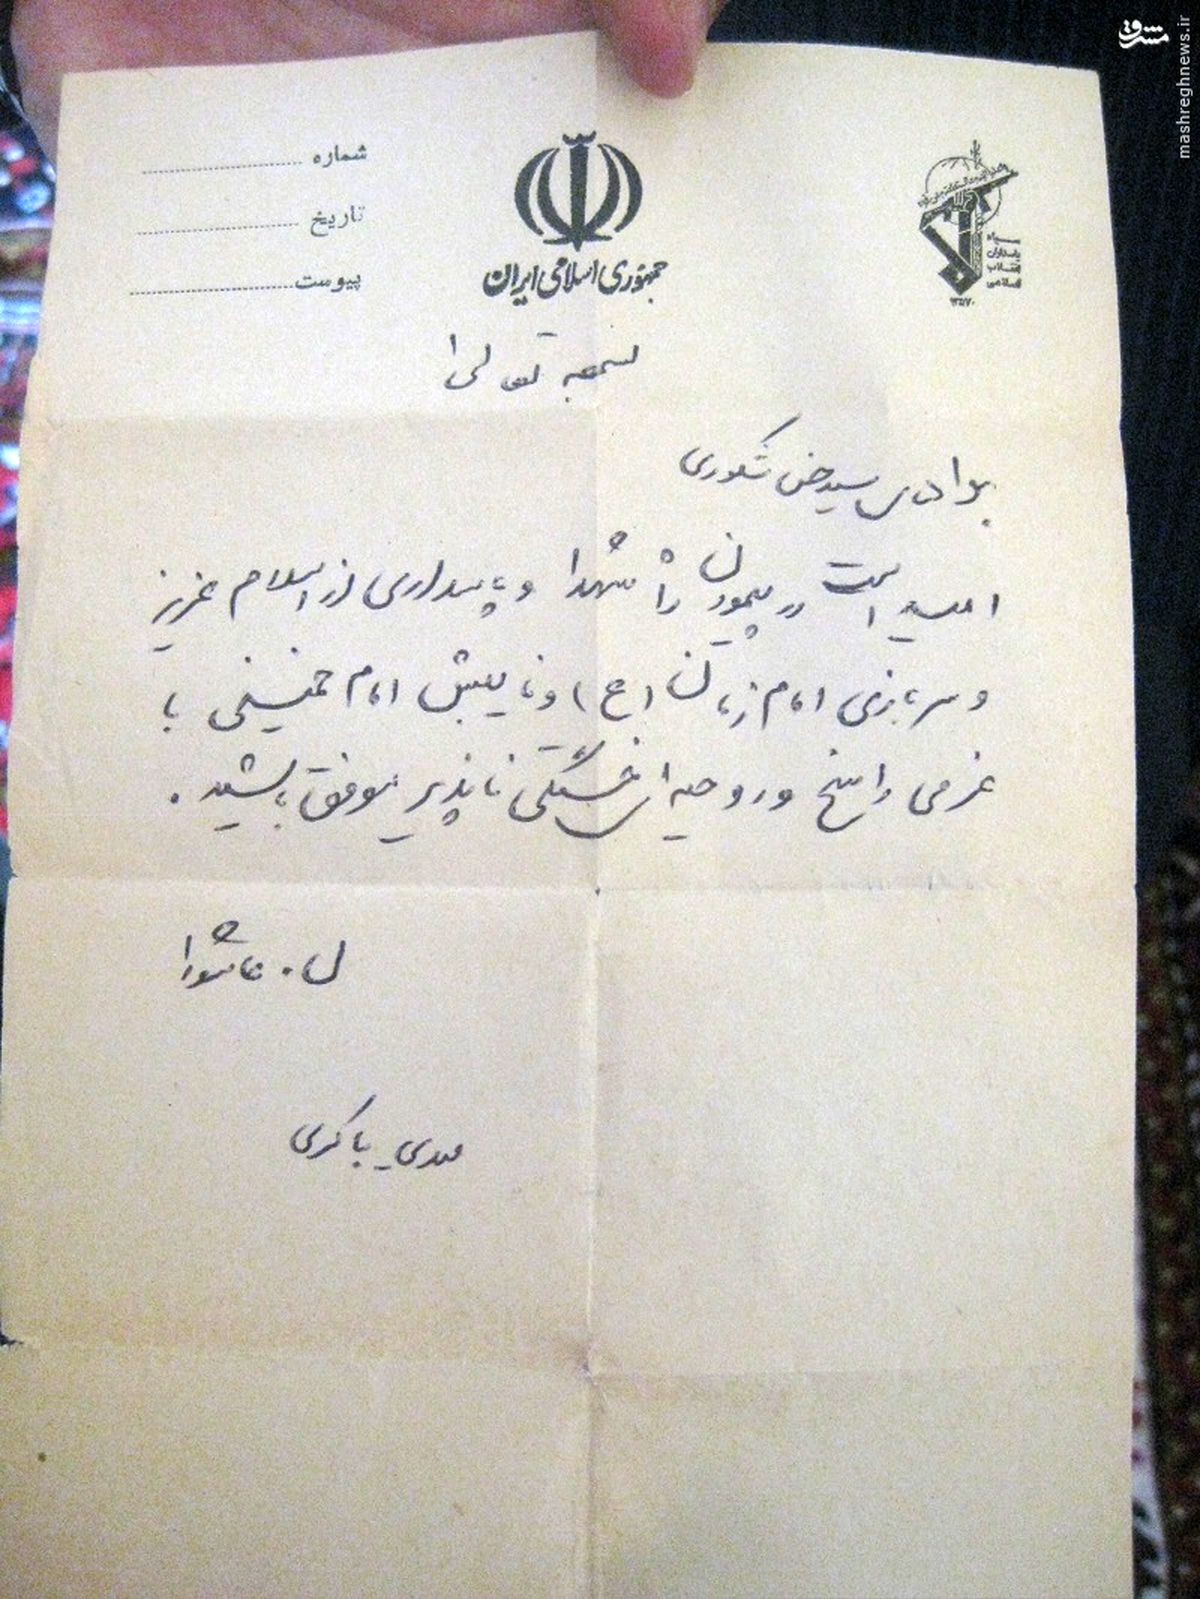 مشرق
mashreghnews.ir
شماره
تاریخ
پیوست
جمهوری اسلامی ایران
سپاه
پاسداران
انقلاب
اسلامی
بسمه تعالی
برادرم سید حسن شکوری
امید است در پیمودن راه شهدا و پاسداری از اسلام عزیز
و سربازی امام زمان (عج) و نایبش امام خمینی با
عزمی راسخ و روحیه‌ای خستگی ناپذیر موفق باشید.
ل ۰ عاشورا
مهدی باکری